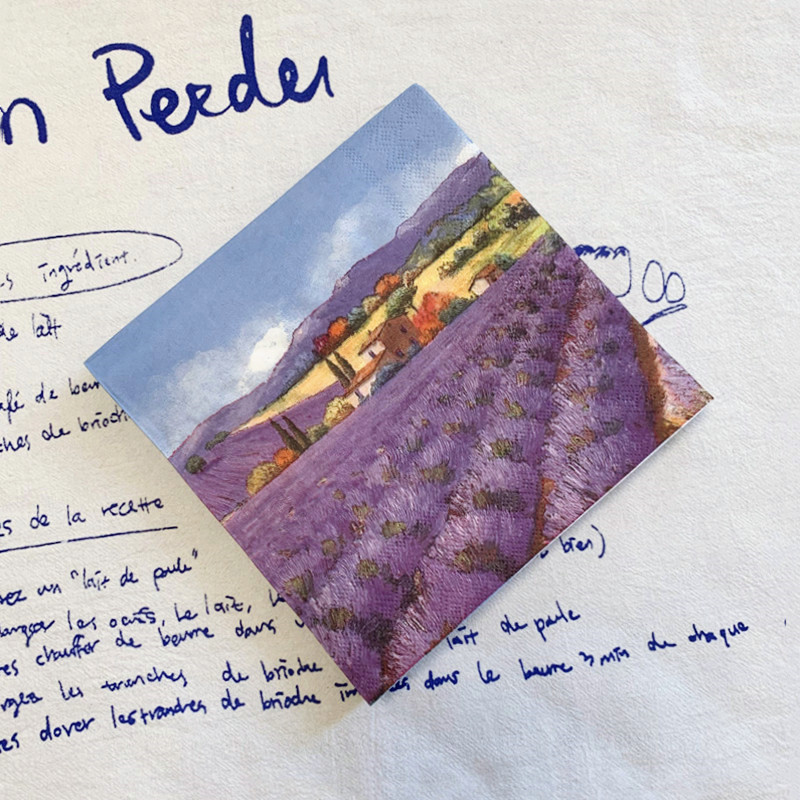 n Perdu
ingrédient.
de lait
café de beu
ches de brioch
es de la recette
rez un "lait de poule"
langer les oeufs, le lait, le
bien)
es chauffer de beurre dans
lait de poule
rgez les tranches de brioche
es dorer les tranches de brioche im es dans le beurre 3 min de chaque